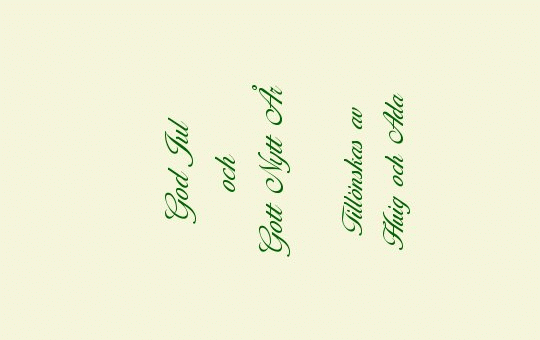 God Jul
och
Gott Nytt År
Tillönskas av
Huig och Ada